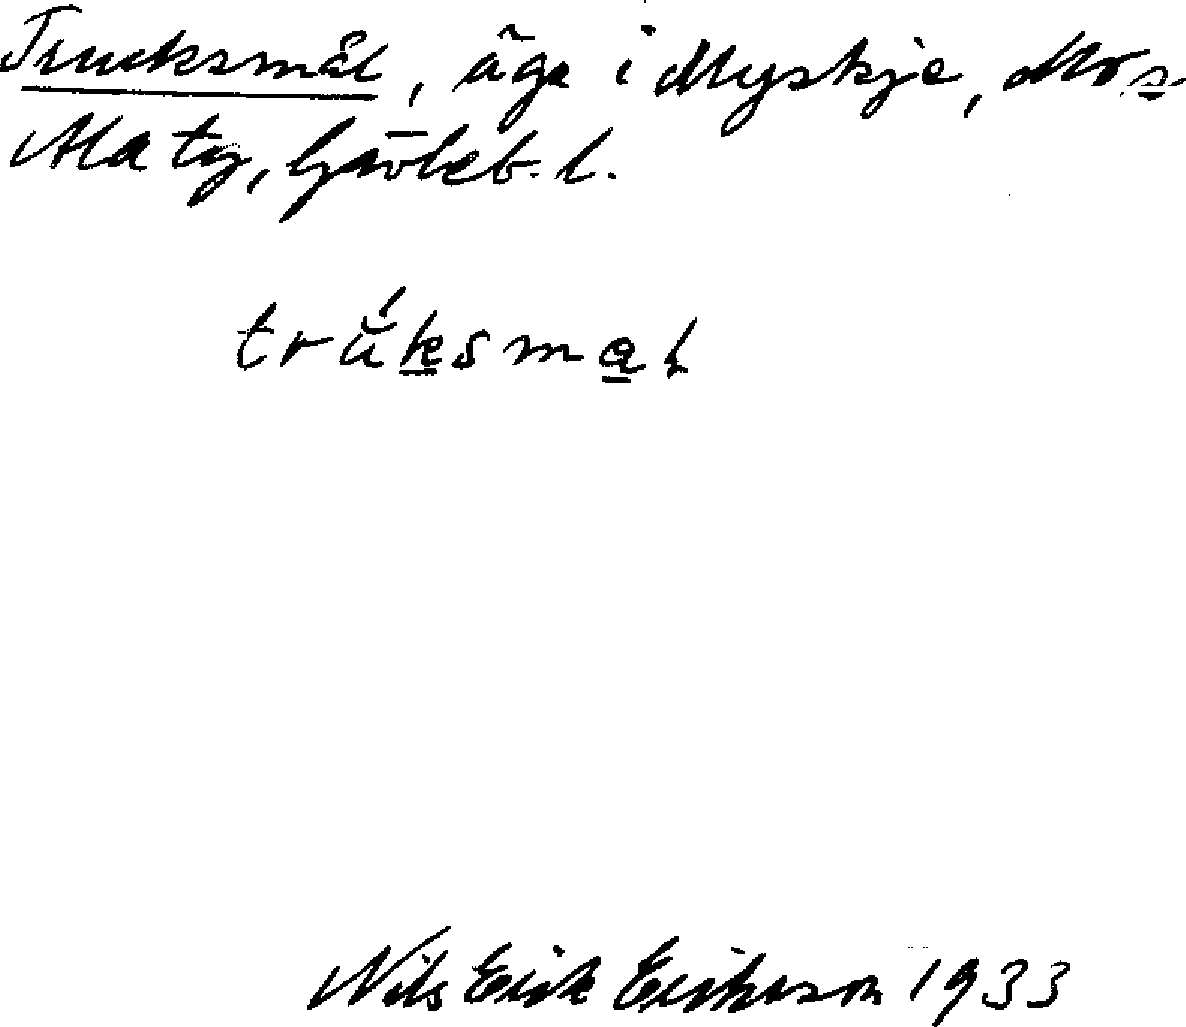 Trucksmål, äga i Myskje, Mo s
Ala tg, Gävleb. l.
trùksmaɫ
Nils Erik Eriksson 1933